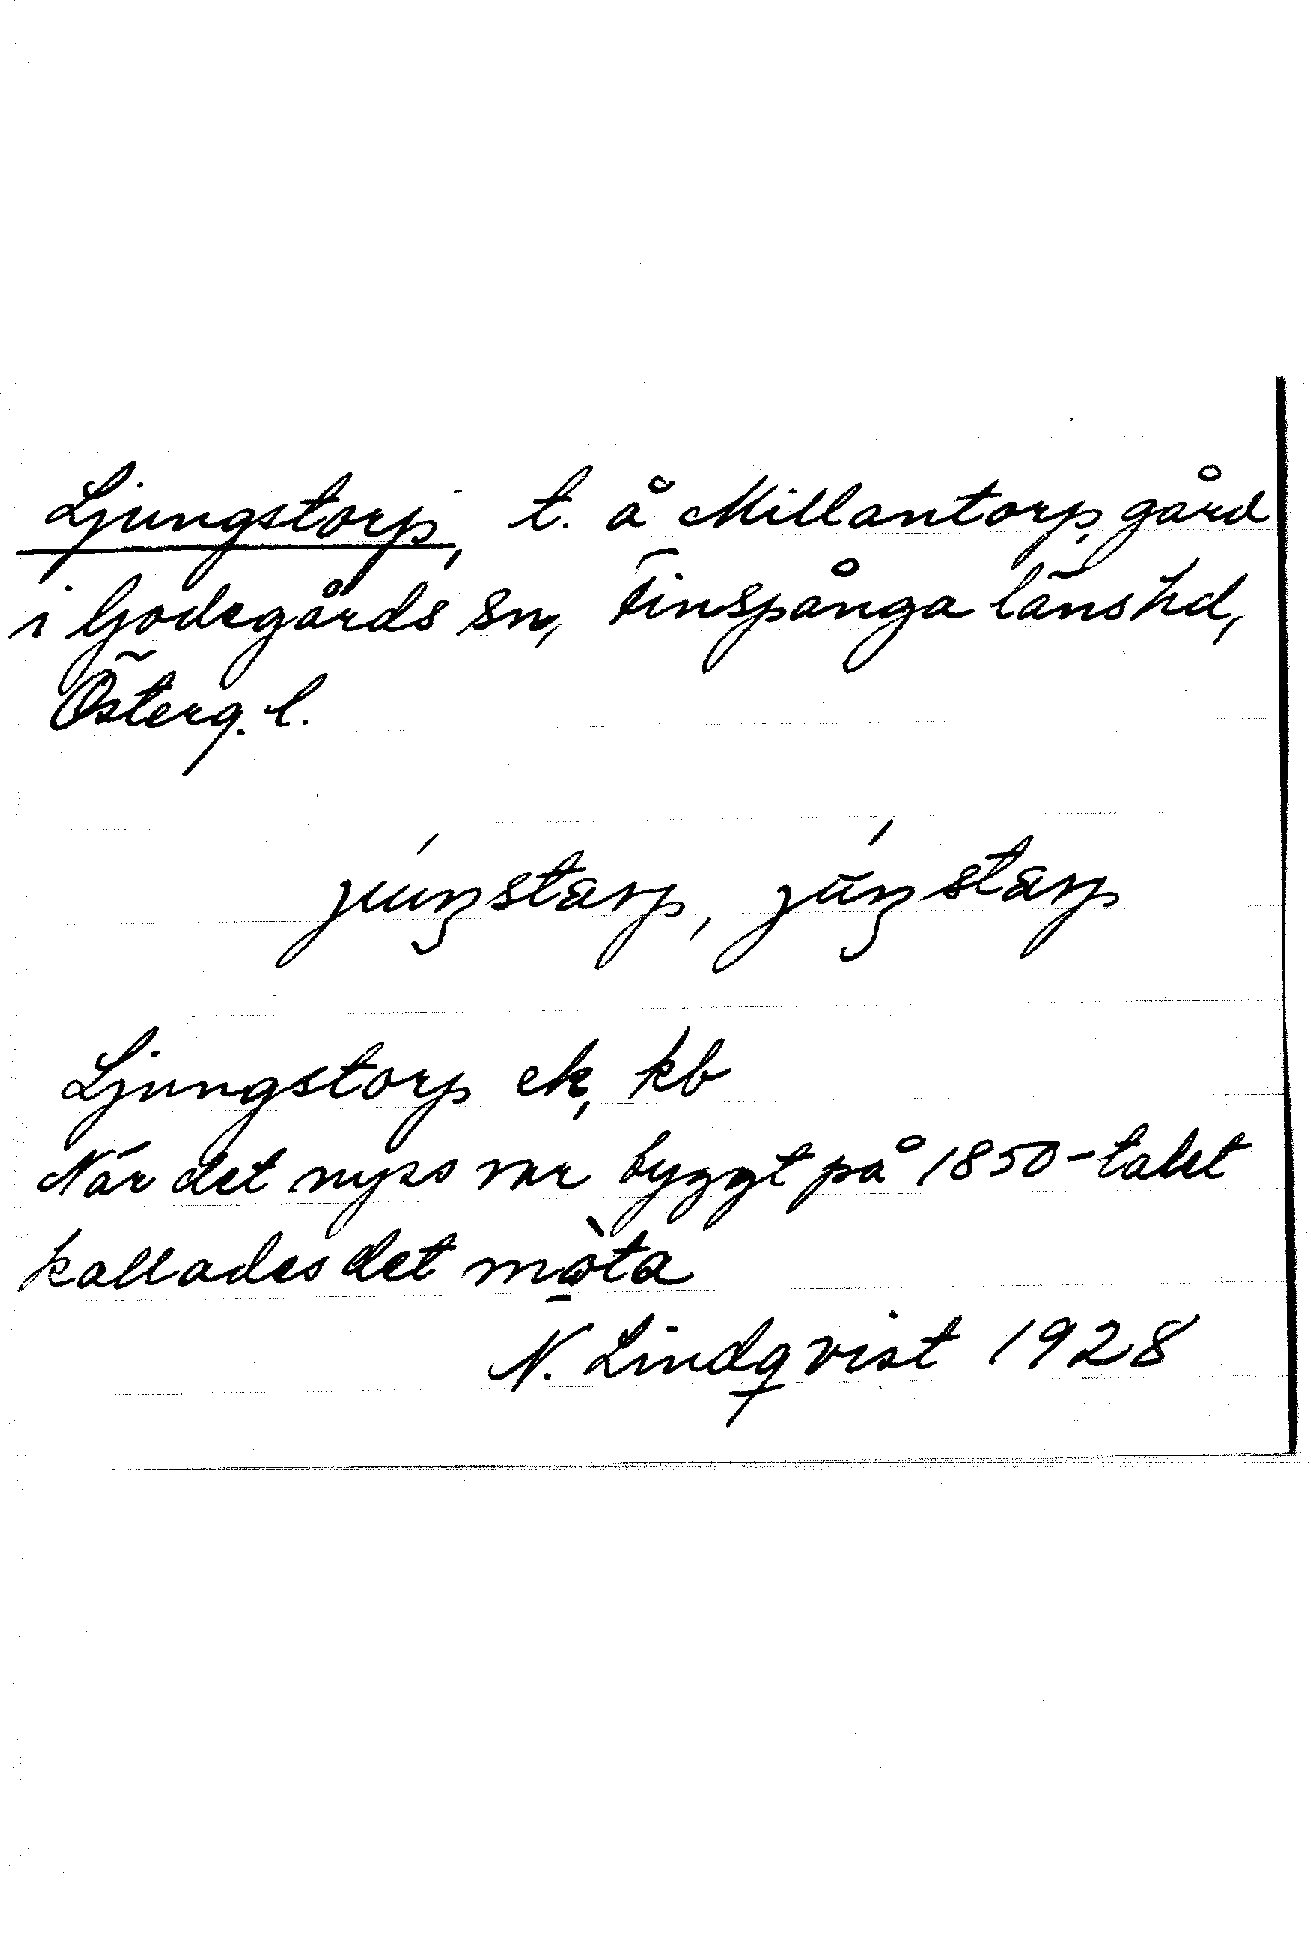 Ljungstorp, t. å Millantorp, gård
i Godegårds sn, Finspånga läns hd,
Österg. l.
Ljungstorp ek, kb
När det nyss var byggt på 1850-talet
kallades det
N. Lindqvist 1928